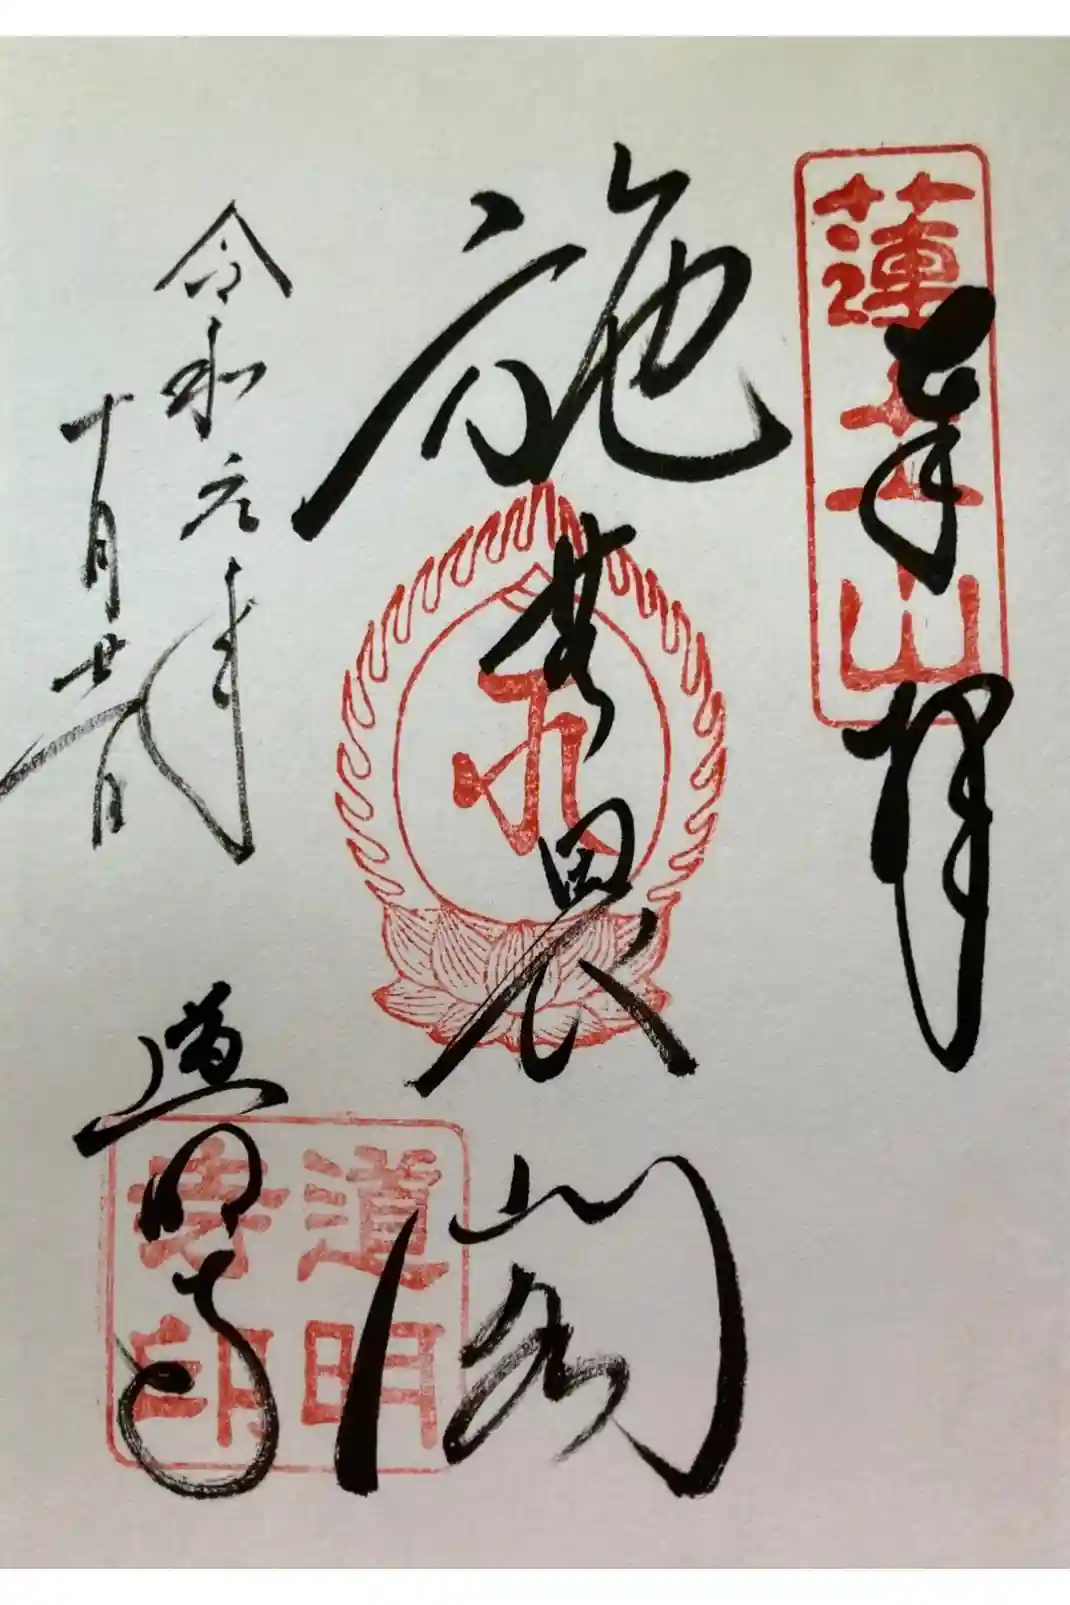 蓮土山
奉拝
施無畏閣
令和元年
十月廿日
道明寺
道明寺印